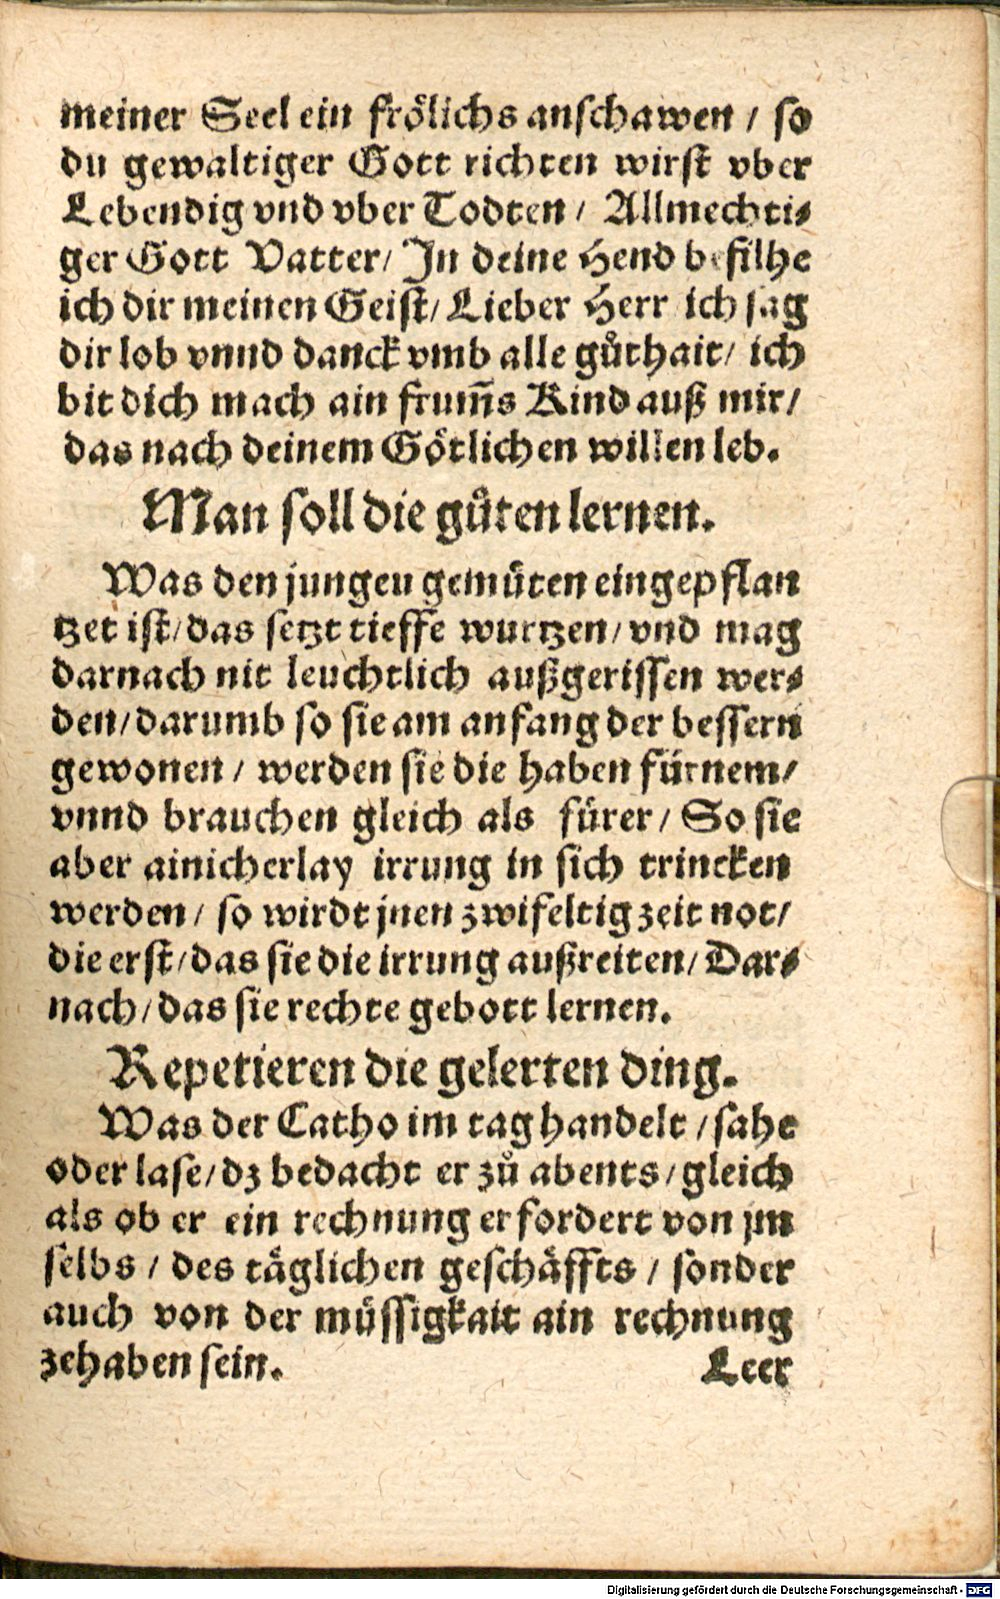 meiner Seel ein frölichs anschawen / so
du gewaltiger Gott richten wirst vber
Lebendig vnd vber Todten / Allmechti⸗
ger Gott Vatter / In deine Hend befilhe
ich dir meinen Geist / Lieber Herr ich sag
dir lob vnnd danck vmb alle guͦthait / ich
bit dich mach ain frum̄s Kind auß mir /
das nach deinem Götlichen willen leb.
Man soll die guͦten lernen.
Was den jungen gemüten eingepflan
tzet ist / das setzt tieffe wurtzen / vnd mag
darnach nit leuchtlich außgerissen wer⸗
den / darumb so sie am anfang der bessern
gewonen / werden sie die haben fürnem /
vnnd brauchen gleich als fürer / So sie
aber ainicherlay irrung in sich trincken
werden / so wirdt jnen zwifeltig zeit not /
die erst / das sie die irrung außreiten / Dar⸗
nach / das sie rechte gebott lernen.
Repetieren die gelerten ding.
Was der Catho im tag handelt / sahe
oder lase / dz bedacht er zuͦ abents / gleich
als ob er ein rechnung erfordert von jm
selbs / des täglichen geschäffts / sonder
auch von der müssigkait ain rechnung
zehaben sein. Leer
Digitalisierung gefördert durch die Deutsche Forschungsgemeinschaft - DFG